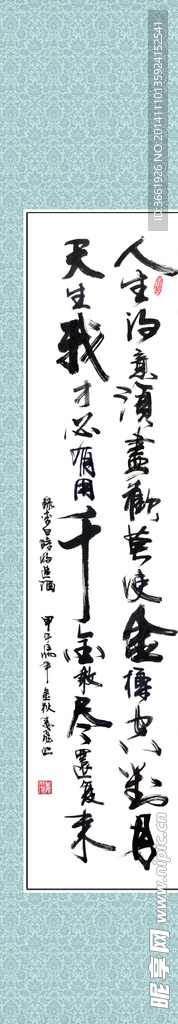 人生得意须盡歡莫使金樽空對月
天生我才必有用千金散尽還复来
录李白诗将进酒
甲午
ID:3661926 NO:20141110135924152541
昵享网 www.nipic.cn